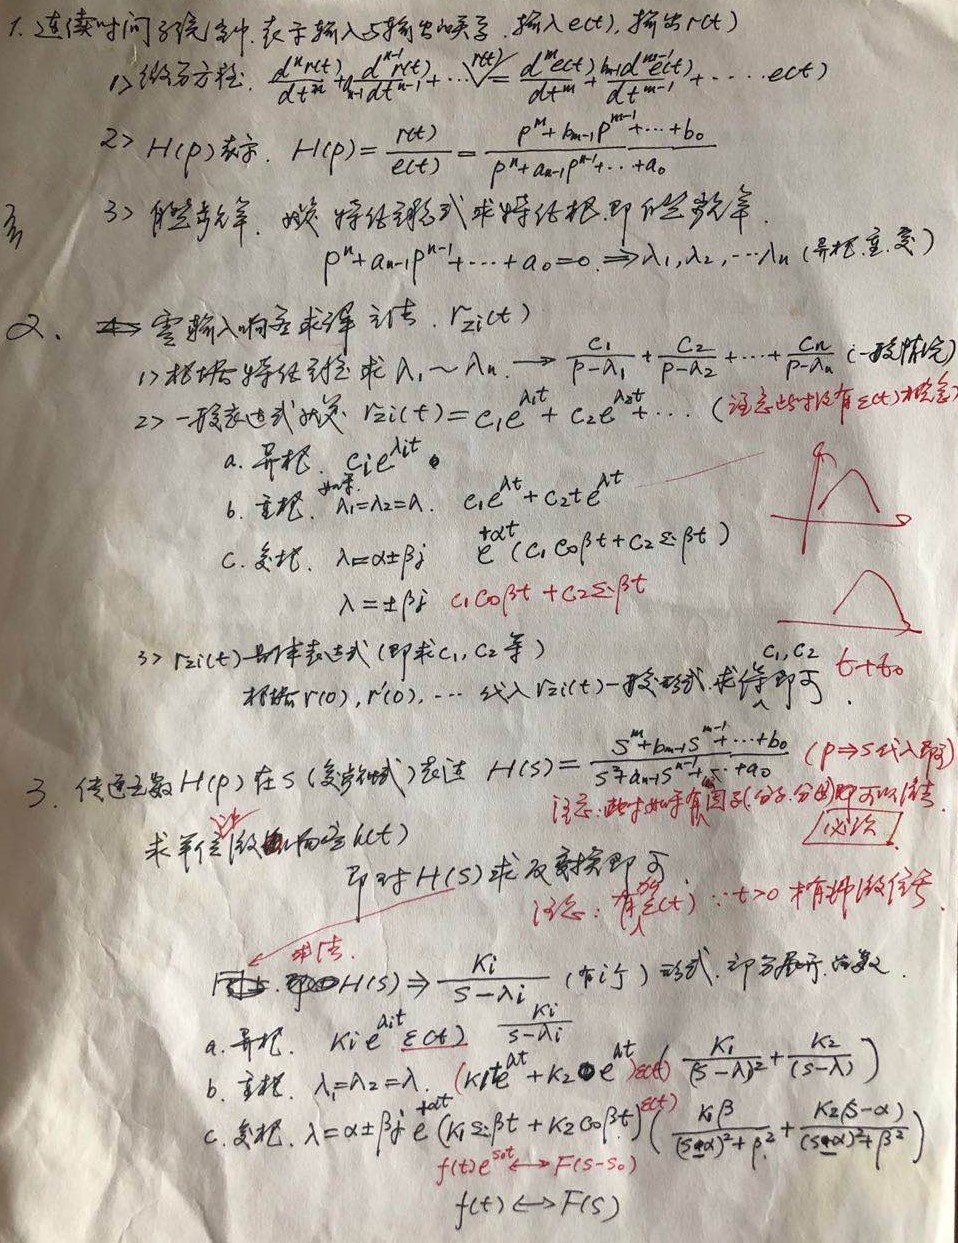 1. 连续时间系统中.表示输入与输出的关系.输入e(t),输出r(t)
1> 微分方程: dⁿr(t)/dtⁿ + aₙ₋₁dⁿ⁻¹r(t)/dtⁿ⁻¹ + ⋯ r(t) = dᵐe(t)/dtᵐ + bₘ₋₁dᵐ⁻¹e(t)/dtᵐ⁻¹ + ⋯⋯e(t)
2> H(p)表示. H(p) = r(t)/e(t) = (pᵐ+bₘ₋₁pᵐ⁻¹+⋯+b₀)/(pⁿ+aₙ₋₁pⁿ⁻¹+⋯+a₀)
3> 自然频率. 特征 式求特征根.即自然频率.
pⁿ+aₙ₋₁pⁿ⁻¹+⋯+a₀=0. ⇒ λ₁,λ₂,⋯λₙ (异根.重.复)
2. 零输入响应求解方法. r_zi(t)
1> 根据特征方程求λ₁~λₙ. → C₁/(p-λ₁) + C₂/(p-λ₂) +⋯+ Cₙ/(p-λₙ) (一般情况)
2> 一般表达式 r_zi(t)=c₁e^λ₁t + c₂e^λ₂t +⋯ (注意此时没有ε(t)概念)
a. 异根. cᵢe^λᵢt
b. 重根. 如果 λ₁=λ₂=λ. c₁e^λt + c₂te^λt
c. 复根. λ=α±βj e^+αt (c₁ Coβt+c₂ Σ:βt)
λ=±βj c₁Coβt + c₂Σ:βt
3> r_zi(t)具体表达式(即求c₁,c₂等)
根据r(0),r'(0),⋯ 代入r_zi(t)一般形式.求得c₁,c₂即可.
t+t₀
3. 传递函数H(p)在s(复频域)表达 H(s)=(sᵐ+bₘ₋₁sᵐ⁻¹+⋯+b₀)/(sⁿ+aₙ₋₁sⁿ⁻¹+⋯+a₀) (p⇒s代入即可)
注意:此时如果有因子(分子.分母)即可以消去.
必须
求单位冲激响应h(t)
即对H(s)求反变换即可.
注意:有ε(t) ∵t>0 才有冲激信号.
求法.
H(s)⇒ Kᵢ/(s-λᵢ) (有i个)形式.部分展开. .
a. 异根. Kᵢe^λᵢt ε(t) Kᵢ/(s-λᵢ)
b. 重根. λ₁=λ₂=λ. (K₁te^λt+K₂e^λt)ε(t) (K₁/(s-λ)² + K₂/(s-λ))
c. 复根. λ=α±βj e^+αt (K₁Σ:βt + K₂Coβt)ε(t) (K₁β/((s-α)²+β²) + K₂(s-α)/((s-α)²+β²))
f(t)e^s₀t ↔ F(s-s₀)
f(t) ↔ F(s)